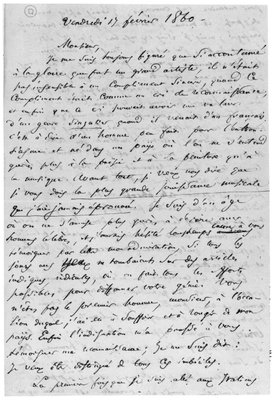 Vendredi 17 février 1860.
Monsieur,
Je me suis toujours figuré que si accoutumé
à la gloire que fut un grand artiste, il n'était
pas insensible à un compliment sincère, quand ce
compliment était comme un cri de reconnaissance,
et enfin que ce cri pouvait avoir une valeur
d'un genre singulier quand il venait d'un français,
c'est-à-dire d'un homme peu fait pour l'enthou
siasme et né dans un pays où l'on ne s'entend
guères plus à la poésie et à la peinture qu'à
la musique. Avant tout, je veux vous dire que
je vous dois la plus grande jouissance musicale
que j'aie jamais éprouvée. Je suis d'un âge
où on ne s'amuse plus guères à écrire aux
hommes célèbres, et j'aurais hésité longtemps encore à vous
témoigner par lettre mon admiration, si tous les
jours mes yeux ne tombaient sur des articles
indignes, ridicules, où on fait tous les efforts
possibles pour diffamer votre génie. Vous
n'êtes pas le premier homme, monsieur, à l'occa
sion duquel j'ai eu à souffrir et à rougir de mon
pays. Enfin l'indignation m'a poussé à vous
témoigner ma reconnaissance ; je me suis dit :
je veux être distingué de tous ces imbéciles.
La première fois que je suis allé aux Italiens